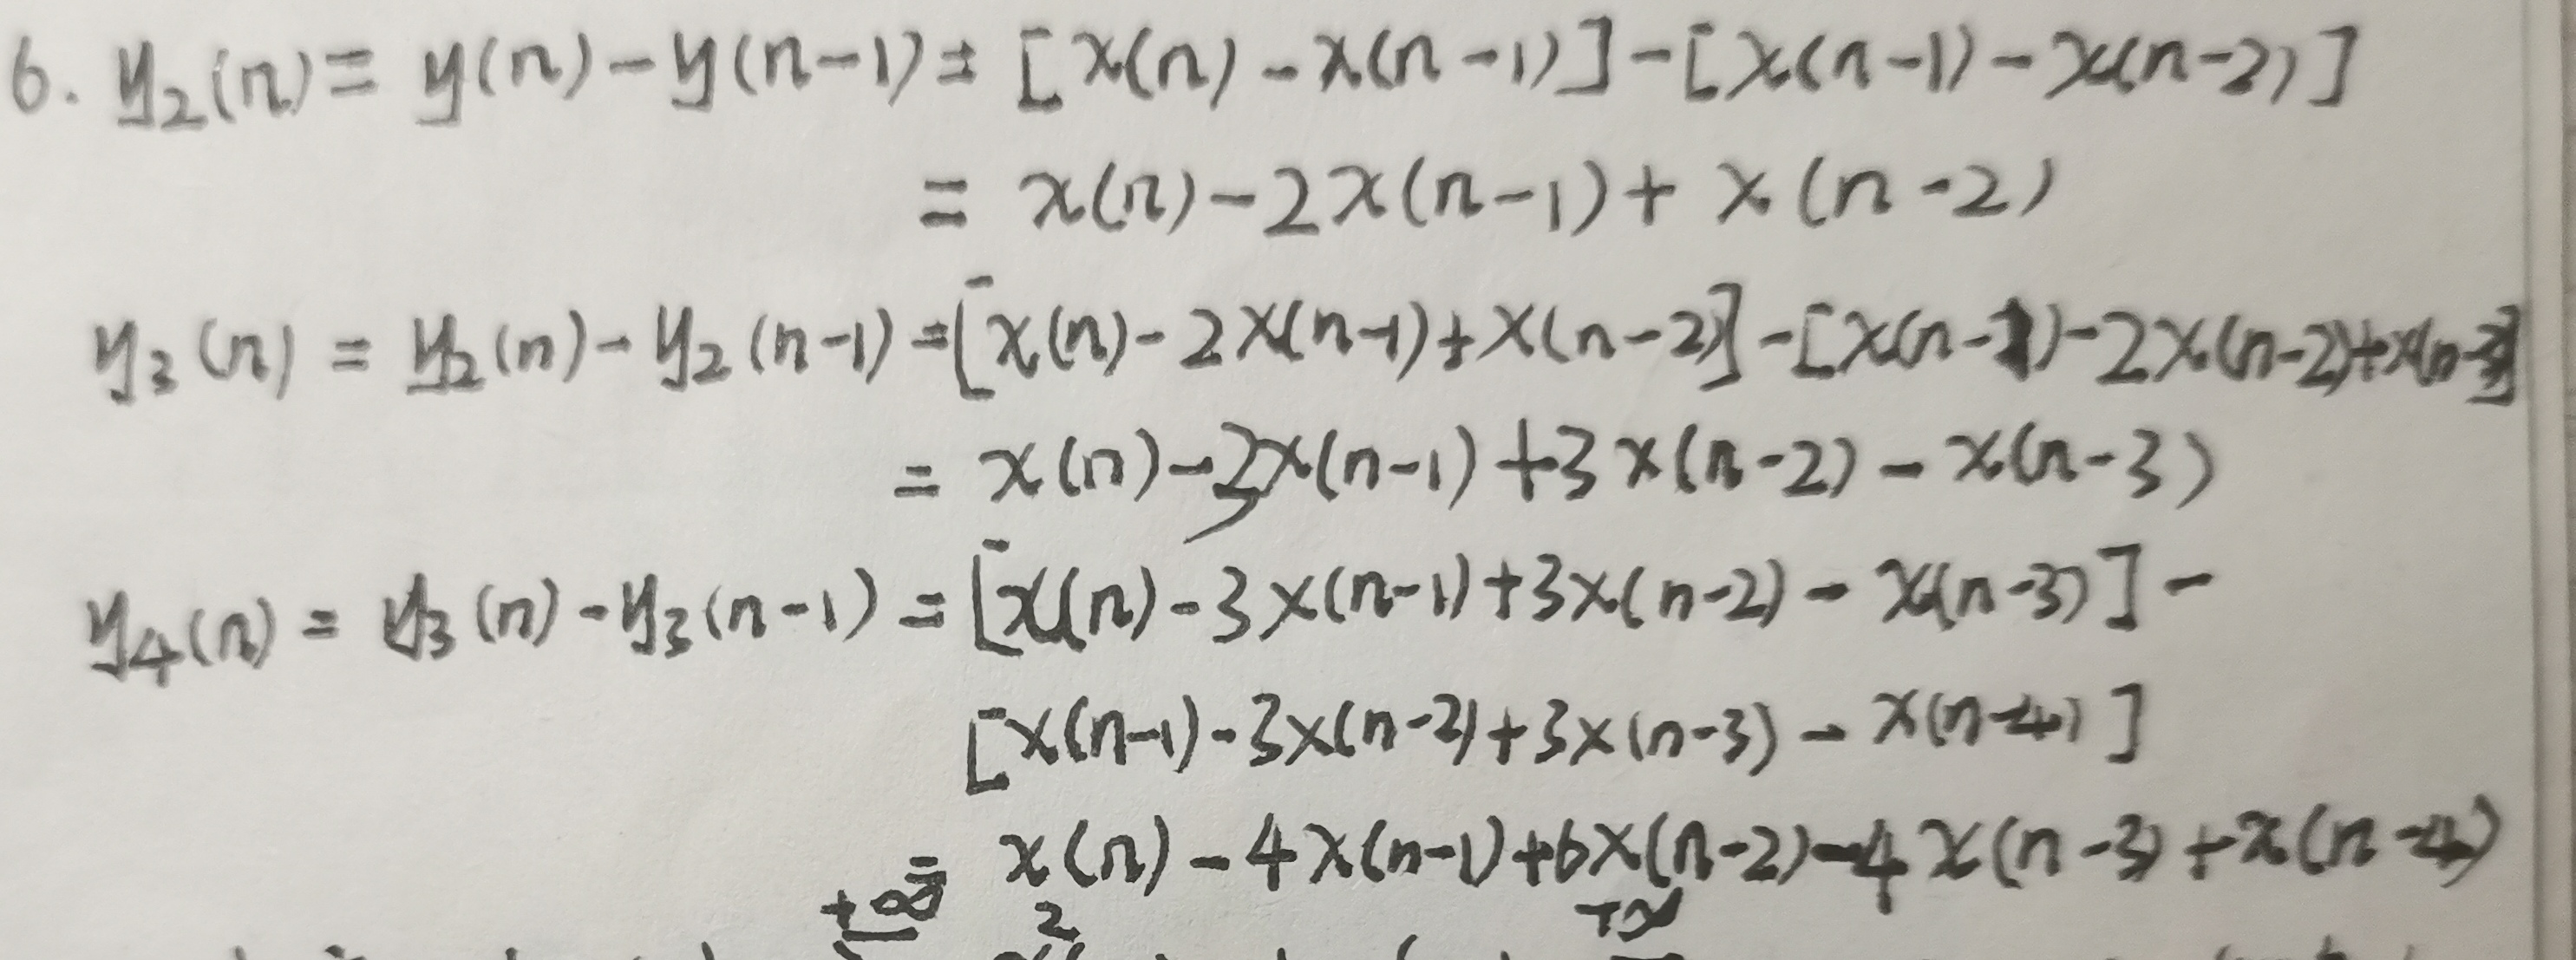 6. y₂(n) = y(n) - y(n-1) = [x(n) - x(n-1)] - [x(n-1) - x(n-2)]
= x(n) - 2x(n-1) + x(n-2)
y₃(n) = y₂(n) - y₂(n-1) = [x(n) - 2x(n-1) + x(n-2)] - [x(n-1) - 2x(n-2) + x(n-3)]
= x(n) - 3x(n-1) + 3x(n-2) - x(n-3)
y₄(n) = y₃(n) - y₃(n-1) = [x(n) - 3x(n-1) + 3x(n-2) - x(n-3)] -
[x(n-1) - 3x(n-2) + 3x(n-3) - x(n-4)]
= x(n) - 4x(n-1) + 6x(n-2) - 4x(n-3) + x(n-4)
+∞ 2 +∞